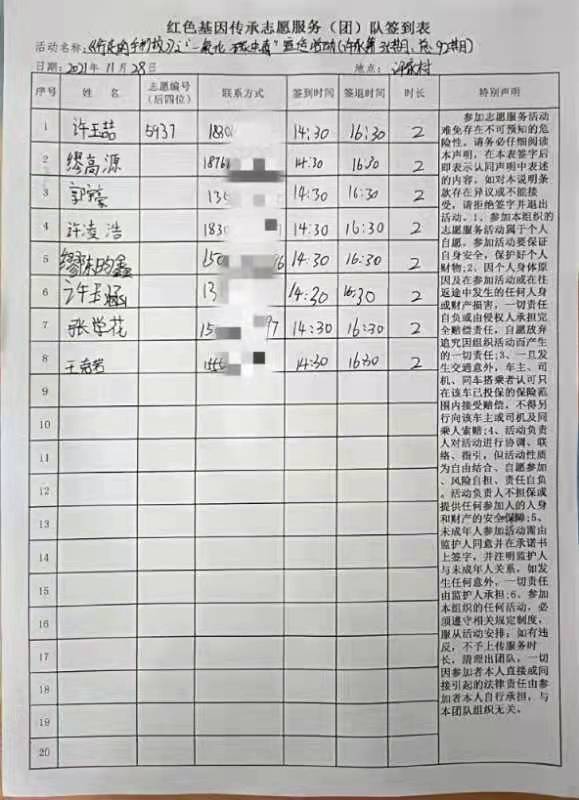 红色基因传承志愿服务（团）队签到表
活动名称：
日期：2021年11月28日 地点：许家村
序号 姓 名 志愿编号（后四位） 联系方式 签到时间 签退时间 时长 特别声明
1 许玉喆 5937 1830 14:30 16:30 2
2 缪高源 1876 14:30 16:30 2
3 135 14:30 16:30 2
4 许凌浩 1830 14:30 16:30 2
5 150 6 14:30 16:30 2
6 许玉涵 13 14:30 16:30 2
7 张学花 15 97 14:30 16:30 2
8 14:30 16:30 2
9
10
11
12
13
14
15
16
17
18
19
20
参加志愿服务活动
难免存在不可预知的危
险性，请务必仔细阅读
本声明，在本表签字后
即表示认同声明中表述
的内容。如对本说明条
款存在异议或不能接
受，请拒绝签字并退出
活动。1、参加本组织的
志愿服务活动属于个人
自愿。参加活动要保证
自身安全，保护好个人
财物;2、因个人身体原
因及在参加活动或在往
返途中发生的任何人身
或财产损害，一切责任
自负或由侵权人承担完
全赔偿责任，自愿放弃
追究因组织活动而产生
的一切责任;3、一旦发
生交通意外，车主、司
机、同车搭乘者认可只
在该车已投保的保险范
围内接受赔偿，不得另
行向该车主或司机及同
乘人索赔;4、活动负责
人对活动进行协调、联
络、指引，但活动性质
为自由结合、自愿参加
、风险自担、责任自负
。活动负责人不担保或
提供任何参加人的人身
和财产的安全保障;5、
未成年人参加活动需由
监护人同意并在承诺书
上签字，并注明监护人
与未成年人关系，如发
生任何意外，一切责任
由监护人承担;6、参加
本组织的任何活动，必
须遵守相关规定制度，
服从活动安排；如有违
反，不予上传服务时
长，清理出团队，一切
因参加者本人直接或间
接引起的法律责任由参
加者本人自行承担，与
本团队组织无关。